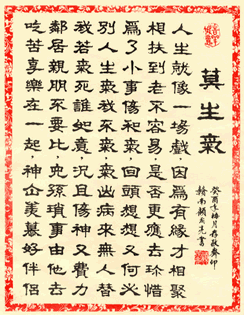 莫生氣
人生就像一場戲，因為有緣才相聚
相扶到老不容易，是否更應去珍惜
為了小事傷和氣，回頭想想又何必
別人生氣我不氣，氣出病來無人替
我若氣死誰如意，況且傷神又費力
鄰居親朋不要比，兒孫瑣事由他去
吃苦享樂在一起，神仙羨慕好伴侶